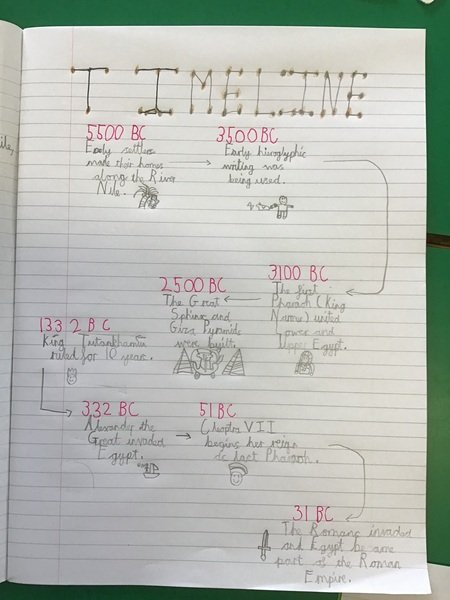 TIMELINE
5500 BC
Early settlers
made their homes
along the River
Nile.
3500 BC
Early hieroglyphic
writing was
being used.
3100 BC
The first
Pharaoh (King
Narmer) united
Lower and
Upper Egypt.
2500 BC
The Great
Sphinx and
Giza Pyramids
were built.
1332 BC
King Tutankhamun
ruled for 10 years.
332 BC
Alexander the
Great invaded
Egypt.
51 BC
VII
begins her reign
as last Pharaoh.
31 BC
The Romans invaded
and Egypt became
part of the Roman
Empire.